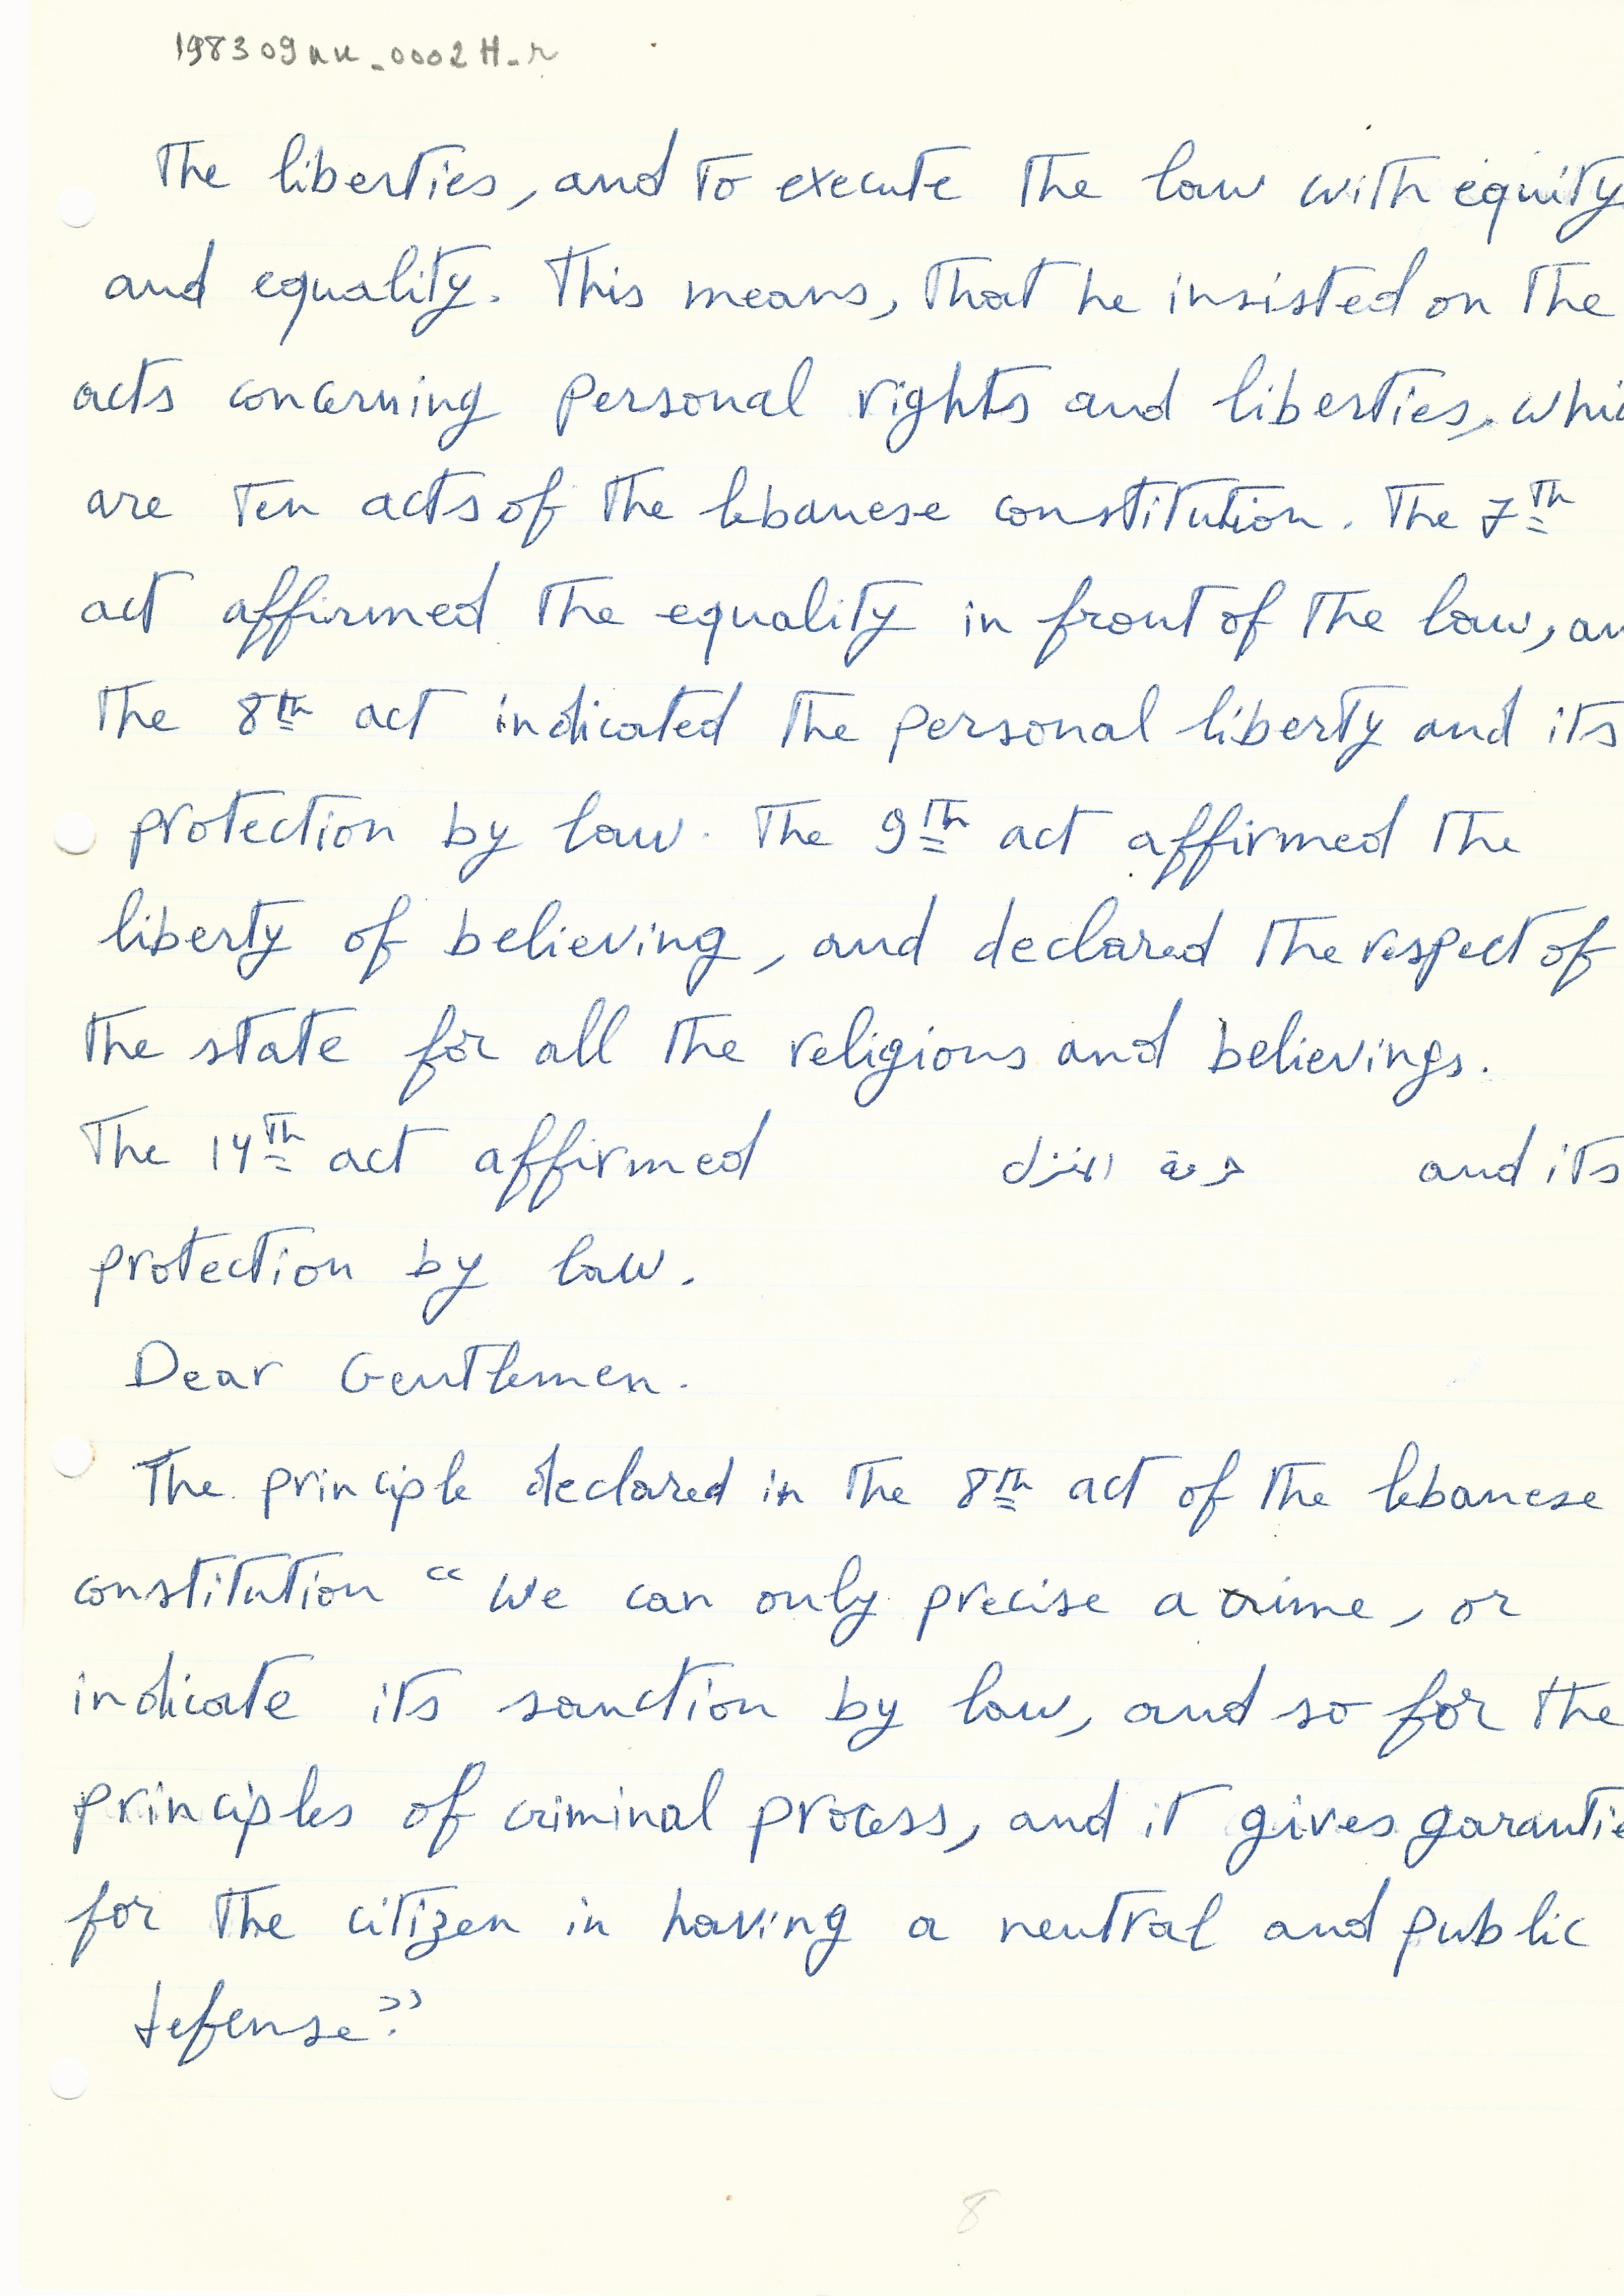 198309nn_0002H_r
The liberties, and to execute the law with equity
and equality. This means, that he insisted on the
acts concerning personal rights and liberties, whic
are ten acts of the lebanese constitution. The 7th
act affirmed the equality in front of the law, an
the 8th act indicated the personal liberty and its
protection by law. The 9th act affirmed the
liberty of believing, and declared the respect of
the state for all the religions and believings.
The 14th act affirmed حرمة المنزل and its
protection by law.
Dear Gentlemen.
The principle declared in the 8th act of the lebanese
constitution "We can only precise a crime, or
indicate its sanction by law, and so for the
principles of criminal process, and it gives garantie
for the citizen in having a neutral and public
defense."
8